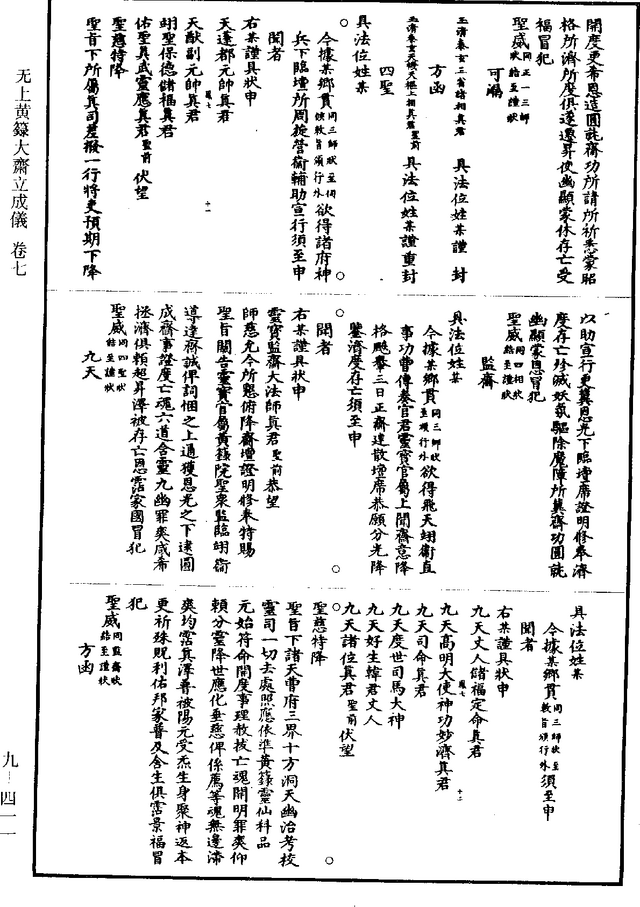 開度更希恩造圓就齋功所請所祈悉蒙昭
格所濟所度俱遂遷昇使幽顯蒙休存亡受
福冒犯
聖威同正一三師狀結至謹狀
可漏
玉清奏女三省諸相真君 具法位姓某謹 封
方函
具法位姓某謹重封
四聖
具法位姓某
今據某鄉貫同三師狀至行外欲得諸府神
兵下臨壇所周旋營衛輔助宣行須至申
聞者
右某謹具狀申
天蓬都元帥真君
天猷副元帥真君
翊聖保德儲福真君
佑聖真武靈應真君聖前 伏望
聖慈特降
聖旨下所屬真司差撥一行將吏預期下降
以助宣行更冀恩光下臨壇席證明修奉濟
度存亡殄滅妖氛驅除魔障所冀齋功圓就
幽顯蒙恩冒犯
聖威同四相狀結至謹狀
監齋
具法位姓某
今據某鄉貫同三師狀至頒行外欲得飛天翊衛直
事功曹傳奏官君靈寶官屬上聞齋意降
格飈輦三日正齋建散壇席恭願分光降
鑒濟度存亡須至申
聞者
右某謹具狀申
靈寶監齋大法師真君聖前恭望
師慈允令所懇俯降齋壇證明修奉特賜
聖旨關告靈寶官屬黃籙院聖衆監臨翊衛
導達齋誠俾詞悃之上通獲恩光之下逮圓
成齋事證度亡魂六道含靈九幽罪爽咸希
拯濟俱賴超昇澤被存亡恩霑家國冒犯
聖威同四聖狀結至謹狀
九天
具法位姓某
今據某鄉貫同三師狀至敕旨頒行外須至申
聞者
右某謹具狀申
九天丈人儲福定命真君
九天高明大使神功妙濟真君
九天司命真君
九天度世司馬大神
九天好生韓君丈人
九天諸位真君聖前伏望
聖慈特降
聖旨下諸天曹府三界十方洞天幽治考校
靈司一切去處照應依準黃籙靈仙科品
元始符命開度事理赦拔亡魂開明罪爽仰
頼分靈降世應化垂慈俾係薦等魂無邊滯
爽均霑真澤普被陽元受炁生身聚神返本
更祈殊貺利佑邦家普及含生俱霑景福冒
犯
聖威同監齋狀結至謹狀
方函
无上黄籙大齋立成儀 卷七
九—四一一